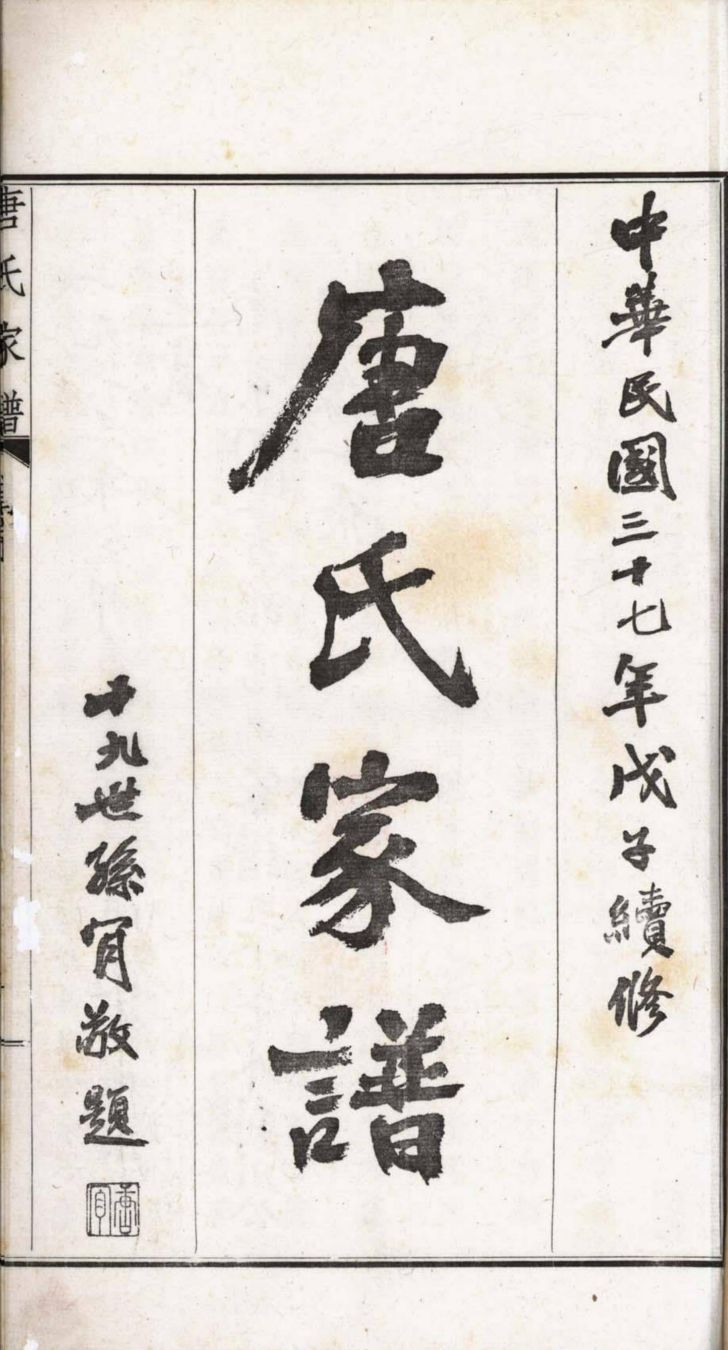 中華民國三十七年戊子續修
唐氏家譜
十九世孫肎敬題
唐肎
唐氏家譜